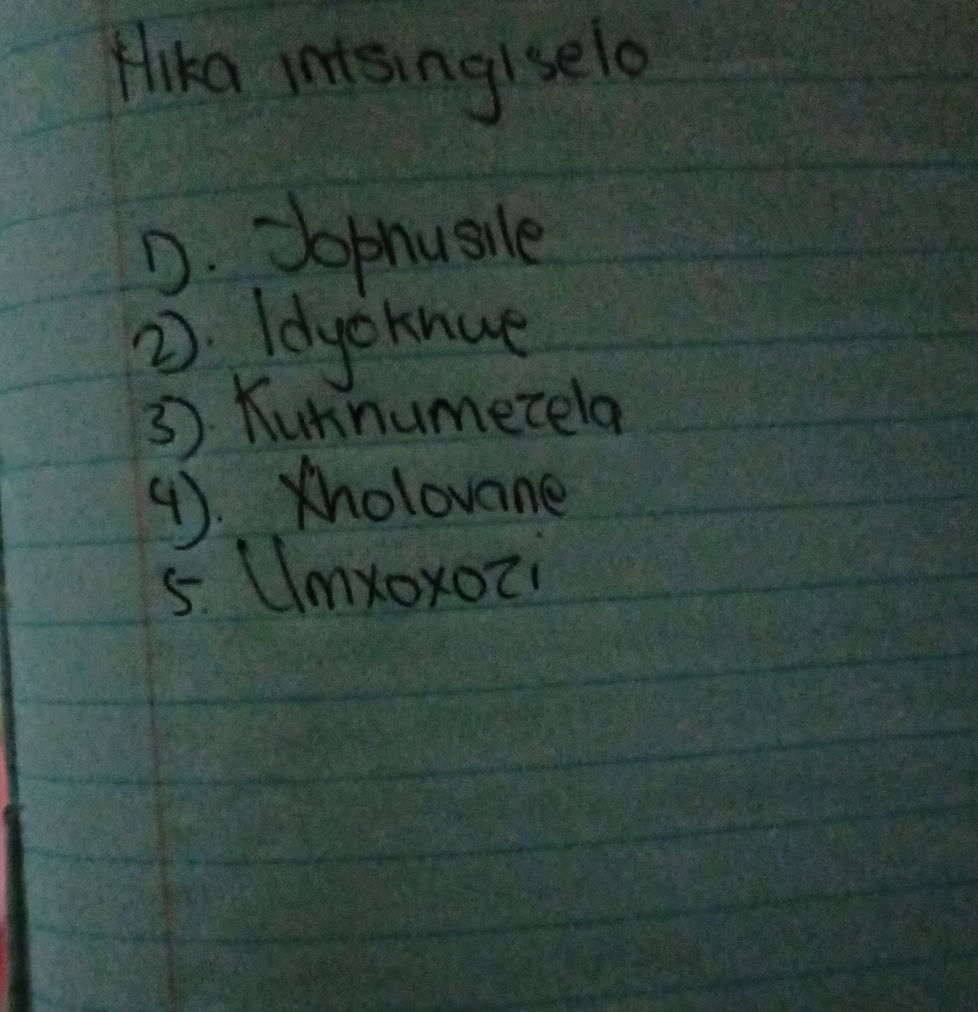 Hika intsingiselo
1). Jophusile
2). Idyokhwe
3). Kukhumezela
4). Xholovane
5. Umxoxozi